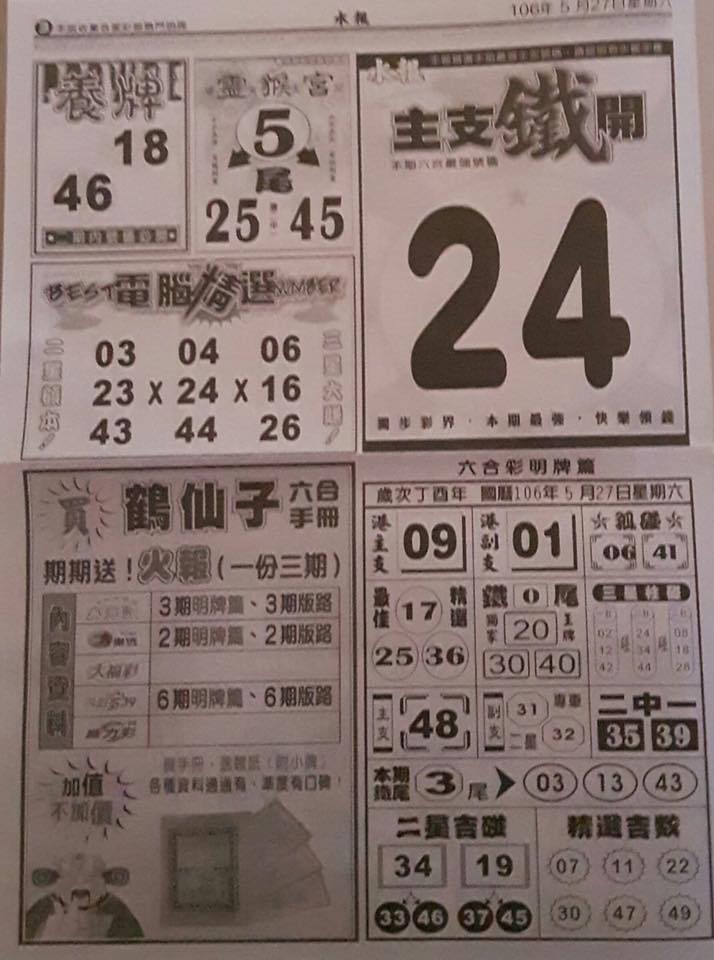 水報
106年5月27日星期六
養牌
18
46
靈猴宮
5
尾
25 45
水報
主支鐵開
本期六合最強號碼
24
獨步彩界，本期最強，快樂領錢
BEST電腦精選NUMBER
二星顧本！
三星大賺！
03 04 06
23 X 24 X 16
43 44 26
買鶴仙子六合手冊
期期送！火報(一份三期)
內容資料
3期明牌篇、3期版路
2期明牌篇、2期版路
大福彩
6期明牌篇、6期版路
加值
不加價
各種資料通通有、準度有口碑！
六合彩明牌篇
歲次丁酉年 國曆106年5月27日星期六
港主支
09
港副支
01
06 41
最佳
17
精選
25 36
鐵0尾
獨家
20
王牌
30 40
02 24 08
12 34 18
42 44 28
主支
48
副支
31
專車
二星
32
二中一
35 39
本期鐵尾
3尾
03 13 43
二星吉碰
34 19
33 46 37 45
精選吉數
07 11 22
30 47 49